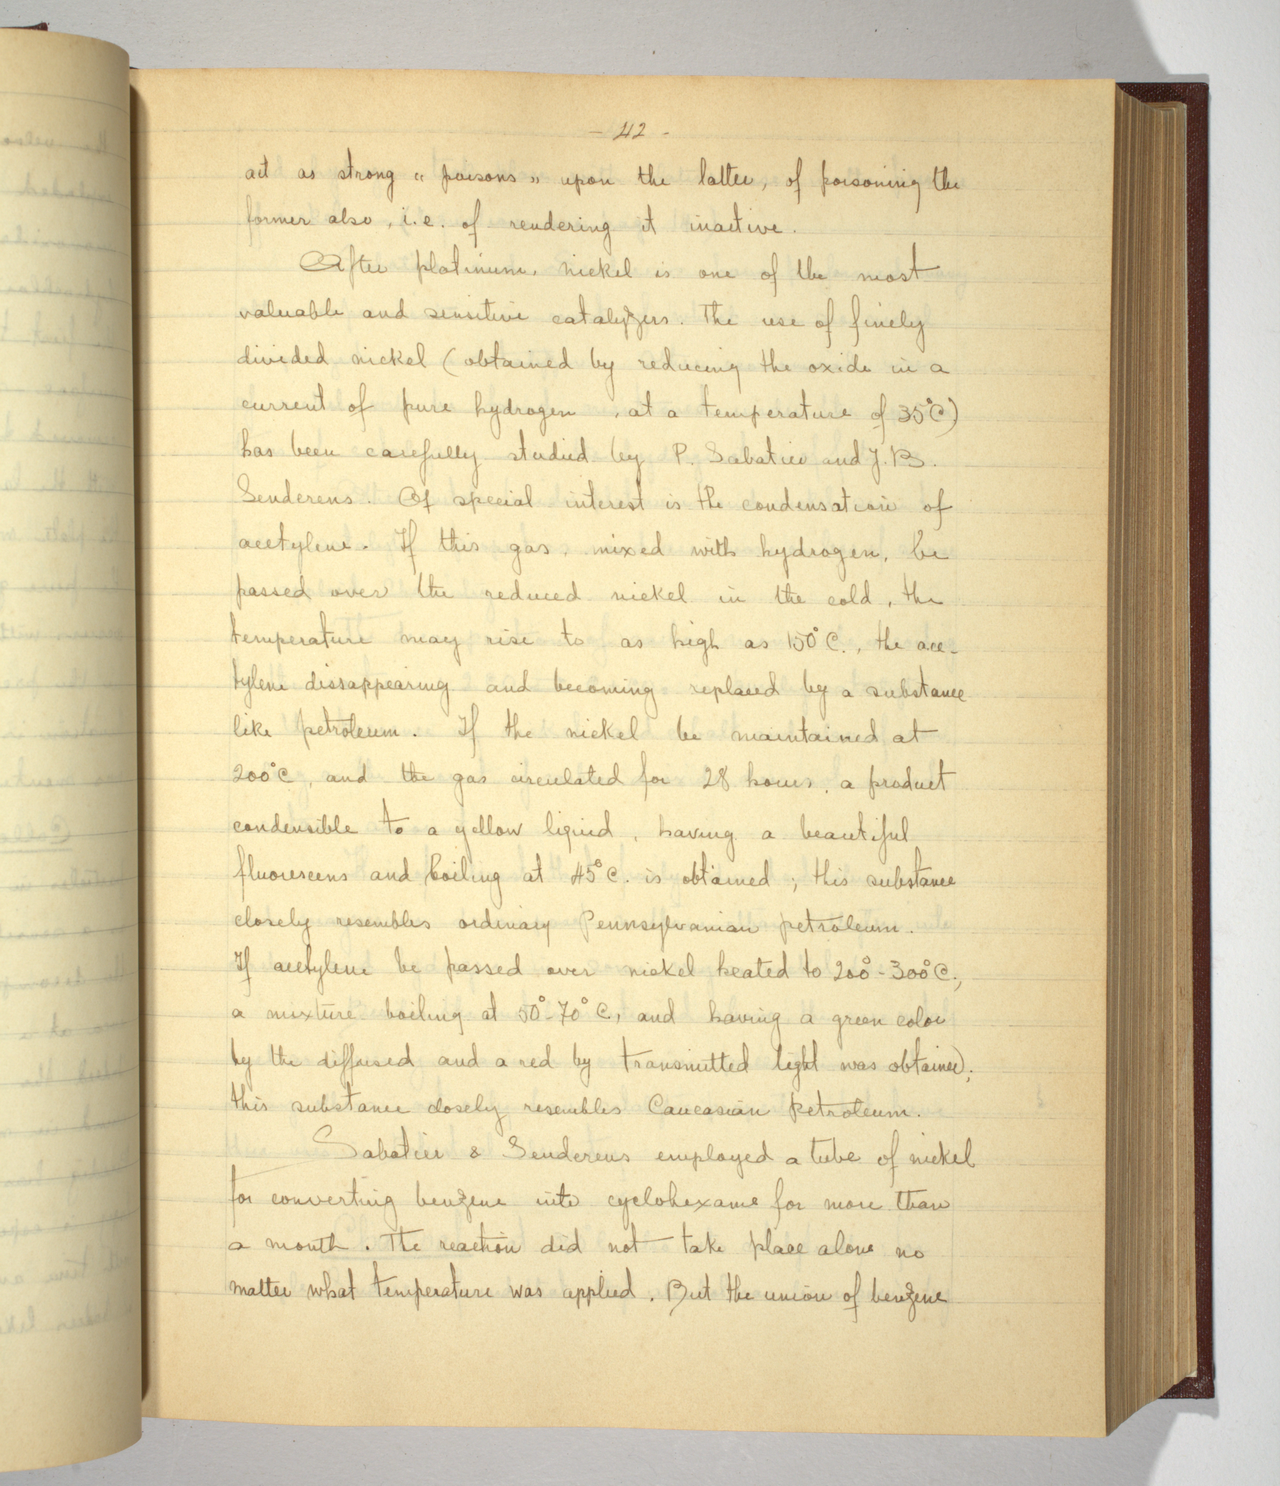 - 42 -
act as strong « poisons » upon the latter, of poisoning the
former also, i.e. of rendering it inactive.
After platinum, nickel is one of the most
valuable and sensitive catalyzers. The use of finely
divided nickel (obtained by reducing the oxide in a
current of pure hydrogen, at a temperature of 35°C)
has been carefully studied by P. Sabatier and J. B.
Senderens. Of special interest is the condensation of
acetylene. If this gas, mixed with hydrogen, be
passed over the reduced nickel in the cold, the
temperature may rise to as high as 150°C., the ace-
tylene dissappearing and becoming replaced by a substance
like petroleum. If the nickel be maintained at
200°C, and the gas circulated for 28 hours, a product
condensible to a yellow liquid, having a beautiful
fluorescens and boiling at 45°C. is obtained; this substance
closely resembles ordinary Pennsylvanian petroleum.
If acetylene be passed over nickel heated to 200°-300°C.,
a mixture boiling at 50°-70°C, and having a green color
by the diffused and a red by transmitted light was obtained;
this substance closely resembles Caucasian Petroleum.
Sabatier & Senderens employed a tube of nickel
for converting benzene into cyclohexame for more than
a month. The reaction did not take place alone no
matter what temperature was applied. But the union of benzene